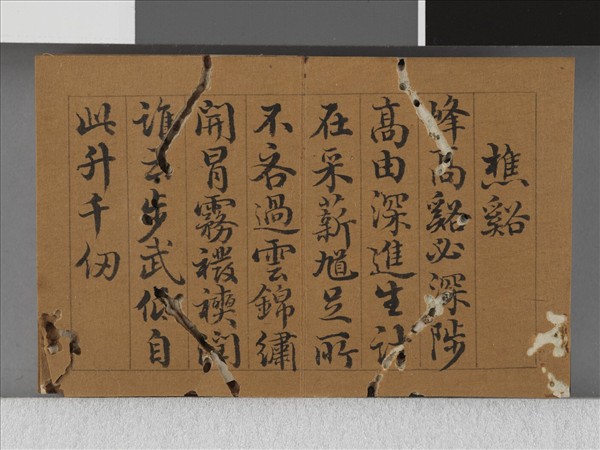 樵谿
峰高谿必深陟
高由深進生計
在采薪足所
不吝過雲錦繡
開冒霧襏襫潤
誰云步武低自
此升千仞